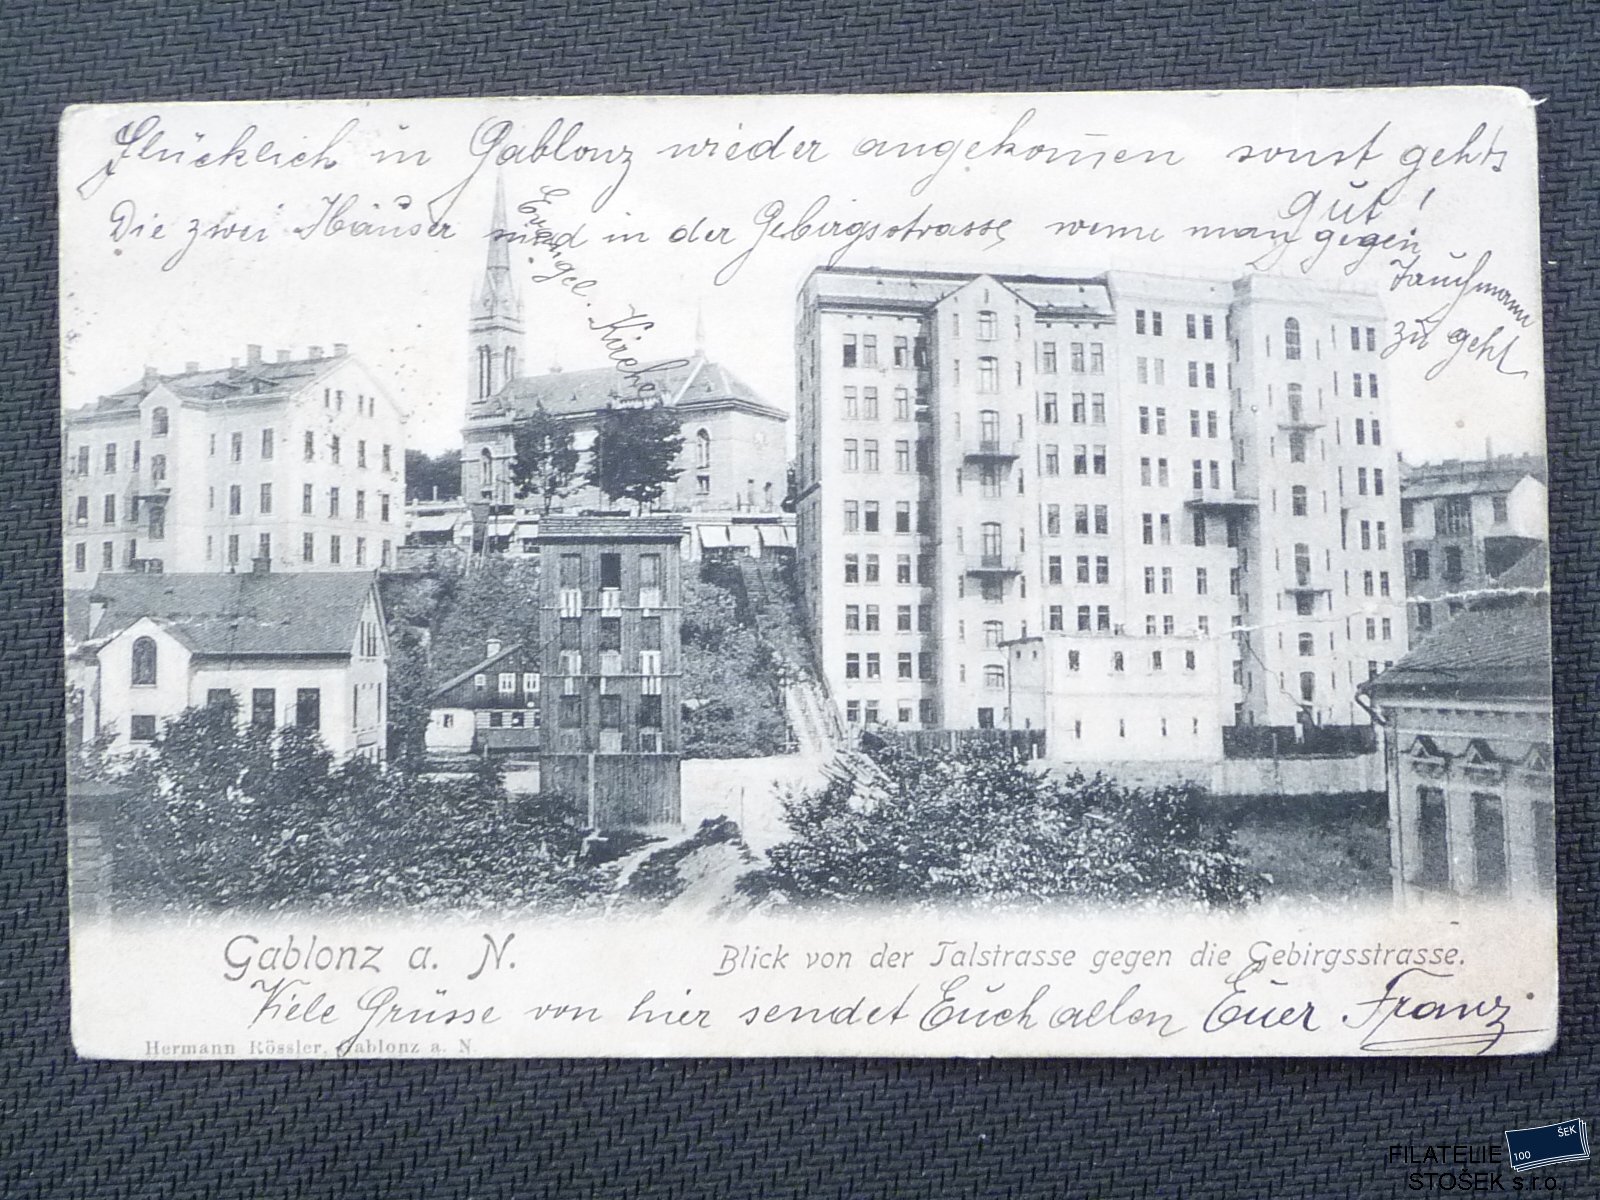 Glücklich in Gablonz wieder angekom̄en sonst gehts
gut!
Die zwei Häuser sind in der Gebirgsstrasse wenn man gegen
Jauchmann
zu geht
Evangel. Kirche
Gablonz a. N.
Blick von der Talstrasse gegen die Gebirgsstrasse.
Viele Grüsse von hier sendet Euch allen Euer Franz
Hermann Rössler, Gablonz a. N.
FILATELIE
STOŠEK s.r.o.
100
ŠEK